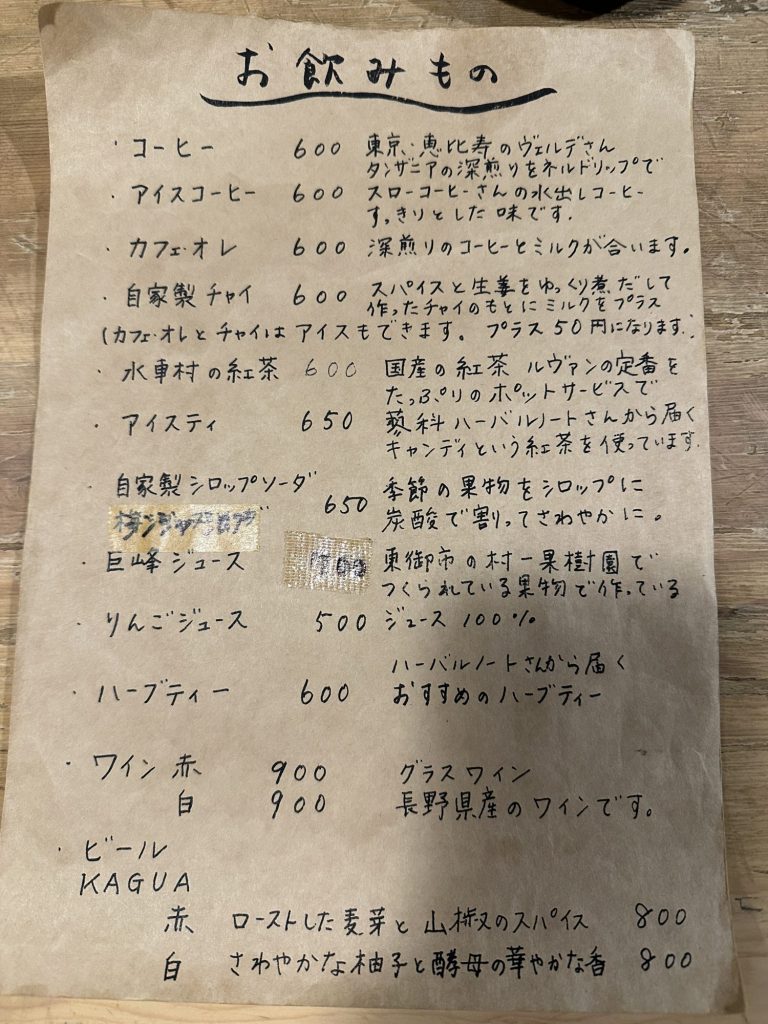 お飲みもの
・コーヒー 600 東京・恵比寿のヴェルデさん
タンザニアの深煎りをネルドリップで
・アイスコーヒー 600 スローコーヒーさんの水出しコーヒー
すっきりとした味です.
・カフェ・オレ 600 深煎りのコーヒーとミルクが合います。
・自家製チャイ 600 スパイスと生姜をゆっくり煮だして
作ったチャイのもとにミルクをプラス
(カフェ・オレとチャイはアイスもできます。プラス50円になります.)
・水車村の紅茶 600 国産の紅茶 ルヴァンの定番を
たっぷりのポットサービスで
・アイスティ 650 蓼科ハーバルノートさんから届く
キャンディという紅茶を使っています.
・自家製シロップソーダ 650 季節の果物をシロップに
炭酸で割ってさわやかに。
・巨峰ジュース 700 東御市の村一果樹園で
つくられている果物で作っている
・りんごジュース 500 ジュース 100%
ハーバルノートさんから届く
・ハーブティー 600 おすすめのハーブティー
・ワイン 赤 900 グラスワイン
白 900 長野県産のワインです。
・ビール
KAGUA
赤 ローストした麦芽と山椒のスパイス 800
白 さわやかな柚子と酵母の華やかな香 800